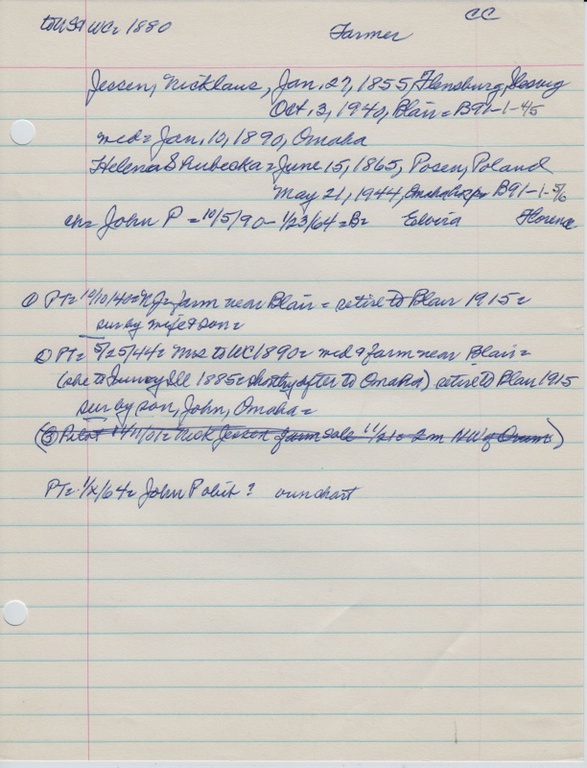 to USA WC= 1880
CC
Farmer
Jessen, Nicklaus, Jan. 27, 1855, Flensburg,
Oct. 3, 1940, Blair = B91-1-4/5
md = Jan. 10, 1890, Omaha
Helena = June 15, 1865, Posen, Poland
May 21, 1944, Omaha B91-1-5/6
ch = John P = 10/5/90 - 1/23/64 = B= Elvira Florence
① PT= 10/10/40= NJ= farm near Blair = retire to Blair 1915=
sur by wife & son=
② PT= 5/25/44= Mrs to WC 1890= md & farm near Blair=
(she to Ill 1885= shortly after to Omaha) retire to Blair 1915
sur by son, John, Omaha=
(③ Pilot 11/11/01= Nick Jessen farm sale 11/21= 2m NW of Orum)
PT= 1/X/64= John P obit? own chart